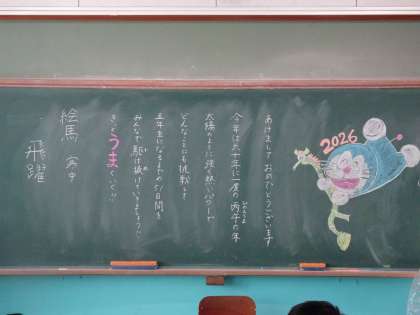 2026
あけまして おめでとうございます
今年は六十年に一度の丙午の年
ひのえうま
太陽のように強く熱いパワーで
どんなことにも挑戦して
五年生になるまでの51日間を
みんなで駆け抜けていきましょう!!
きっとうまくいく!!
絵馬(次中
飛躍